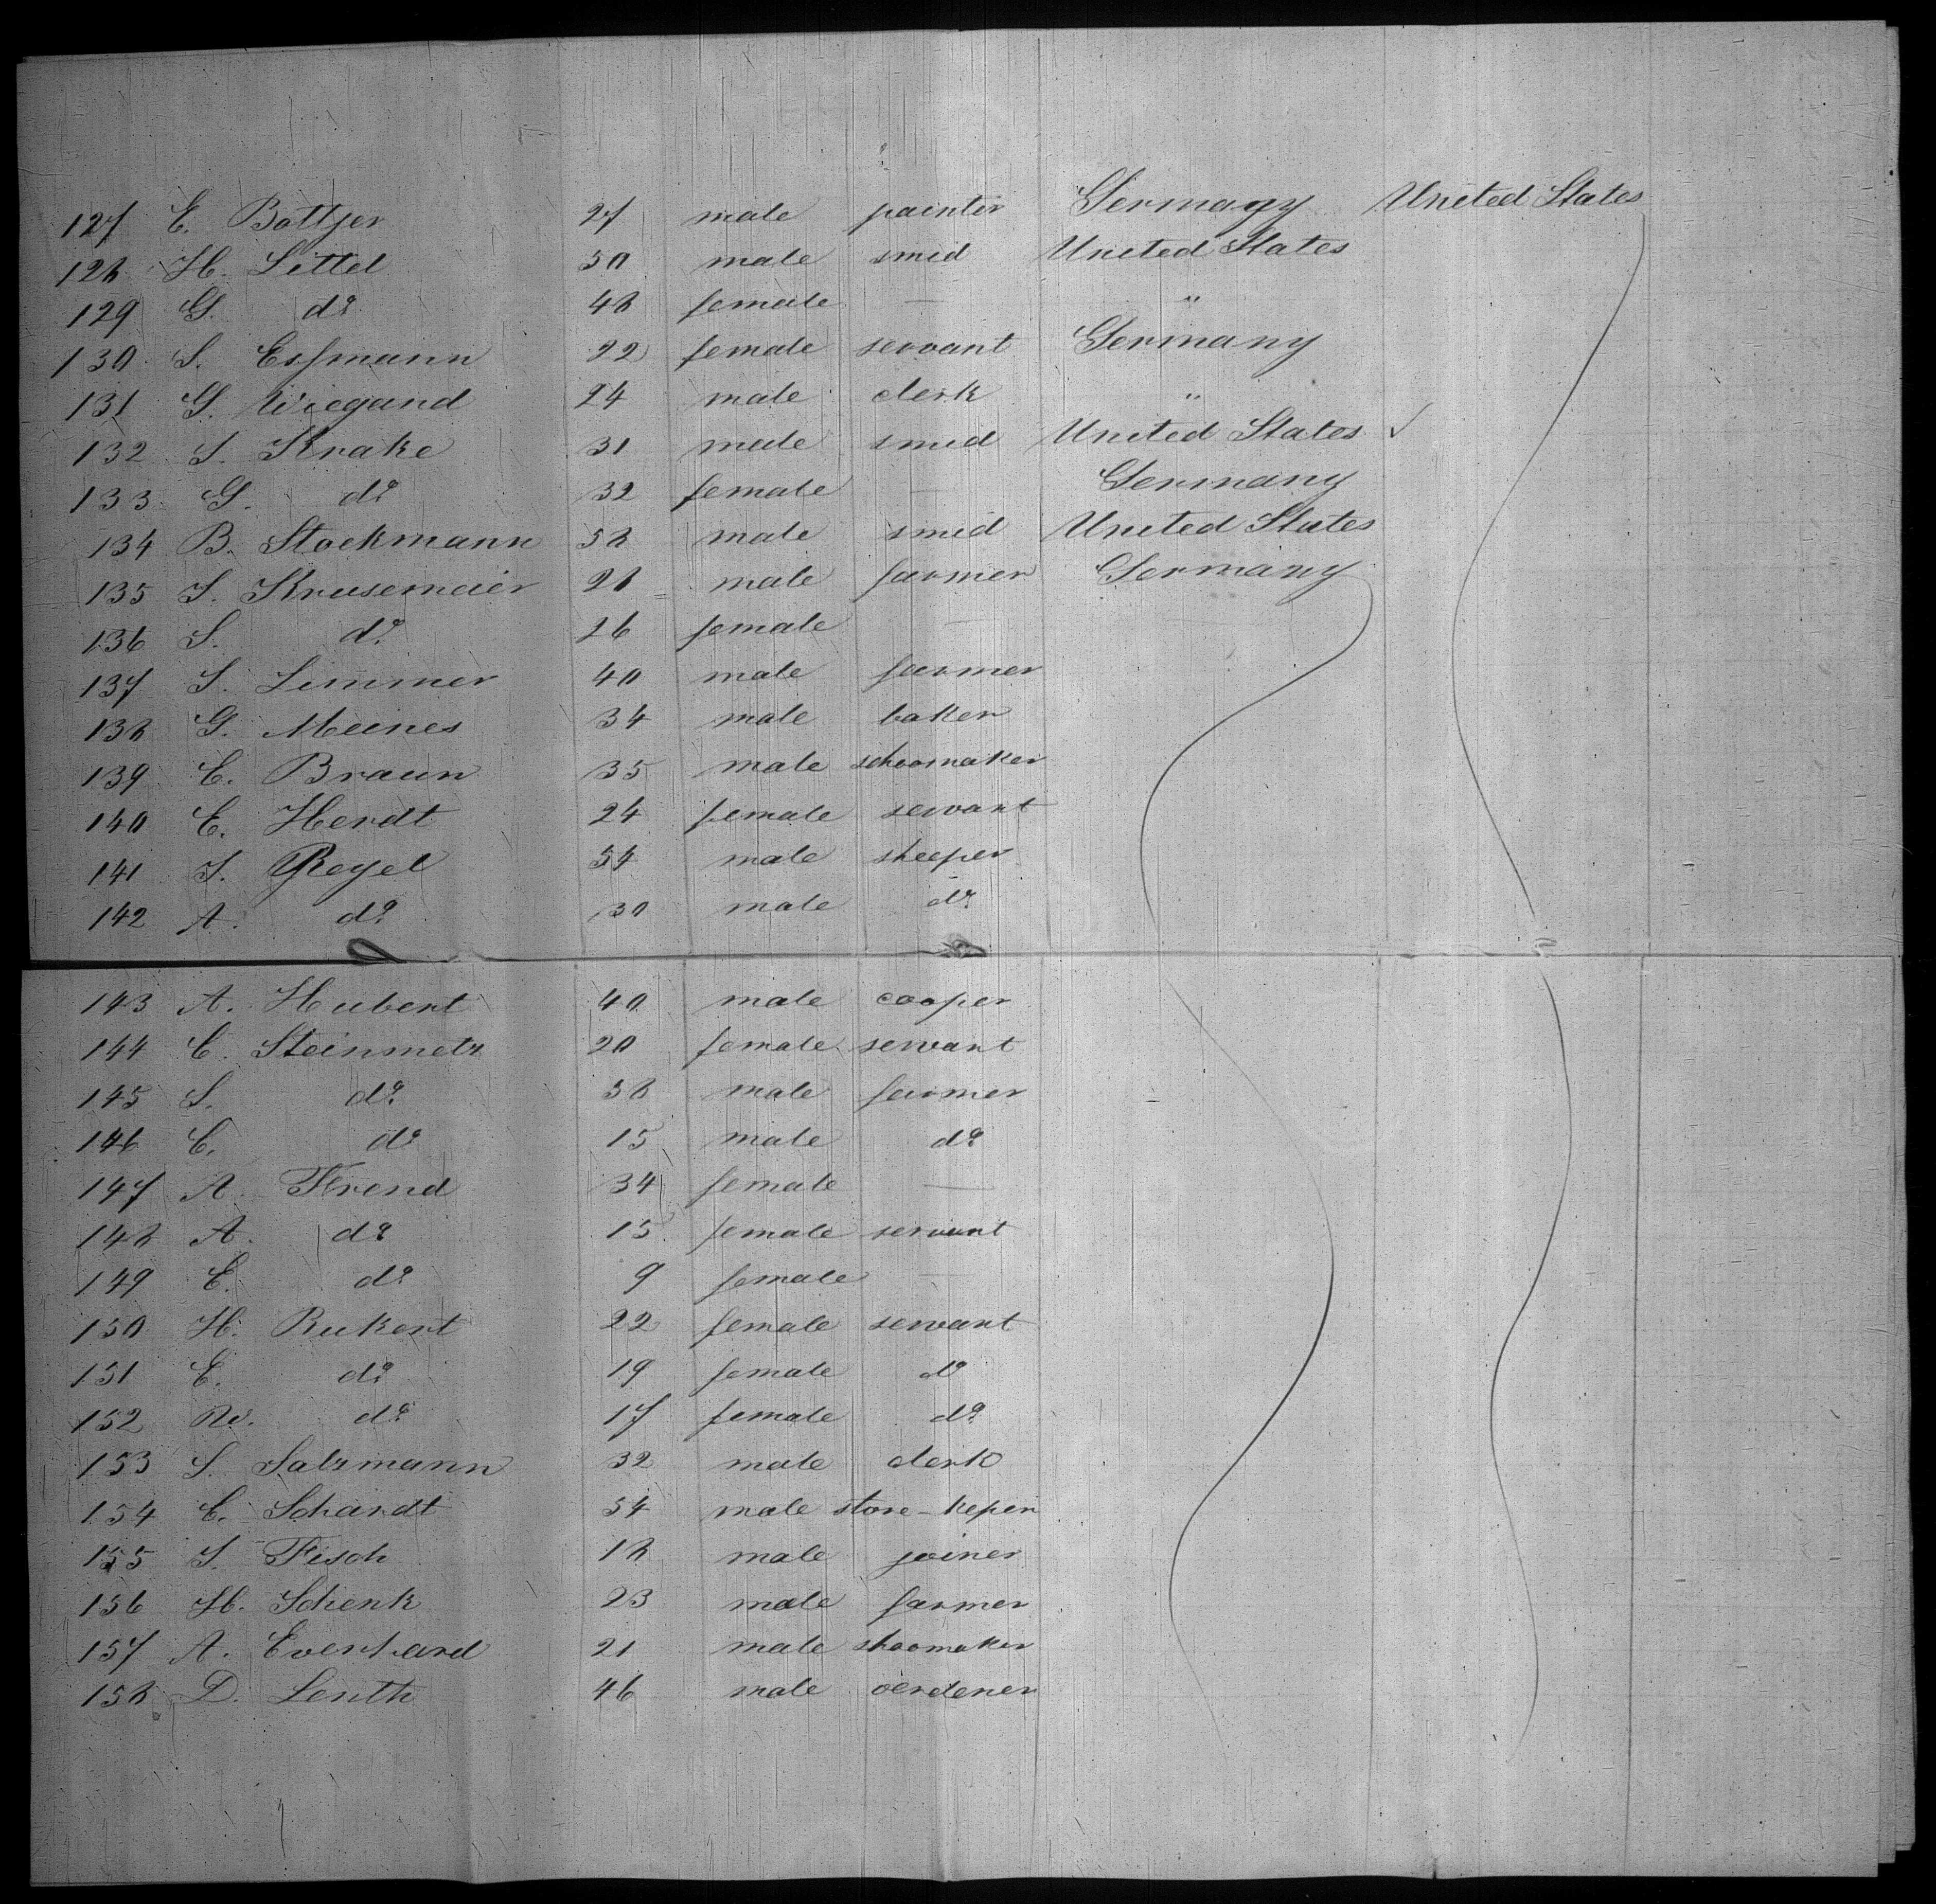 127 E. Bottjer 27 male painter Germany United States
128 H. Littel 50 male smid United States
129 G. do 48 female — "
130 S. Essmann 22 female servant Germany
131 G. Wiegand 24 male clerk "
132 S. Krake 31 male smid United States ✓
133 G. do 32 female — Germany
134 B. Stockmann 58 male smid United States
135 S. Krusemeier 28 male farmer Germany
136 S. do 26 female —
137 S. Limmer 40 male farmer
138 G. Meines 34 male baker
139 C. Braun 35 male schoomaker
140 E. Herdt 24 female servant
141 S. Regel 54 male sheeper
142 A. do 30 male do
143 A. Hubert 40 male cooper
144 C. Steinmetz 20 female servant
145 S. do 58 male farmer
146 C. do 15 male do
147 A. Frend 34 female —
148 A. do 15 female servant
149 E. do 9 female
150 H. Rukert 22 female servant
151 E. do 19 female do
152 do 17 female do
153 S. Salzmann 32 male clerk
154 C. Schardt 54 male store-keper
155 S. Fisch 18 male joiner
156 H. Schenk 23 male farmer
157 A. Everhard 21 male shoomaker
158 D. Lenth 46 male